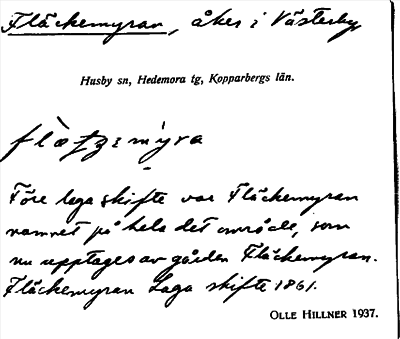 Fläckemyran, åker i Västerby
Husby sn, Hedemora tg, Kopparbergs län.
Före laga skifte var Fläckemyran
namnet på hela det område, som
nu upptages av gården Fläckemyran.
Fläckemyran Laga skifte 1861.
OLLE HILLNER 1937.